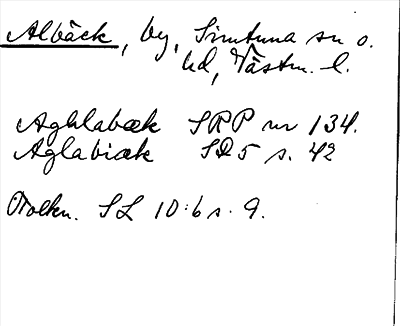 Albäck, by, Simtuna sn o.
hd, Västm. l.
Aghlabæk SRP nr 134.
Aglabiæk SD 5 s. 42
Tolkn. SL 10:6 s. 9.